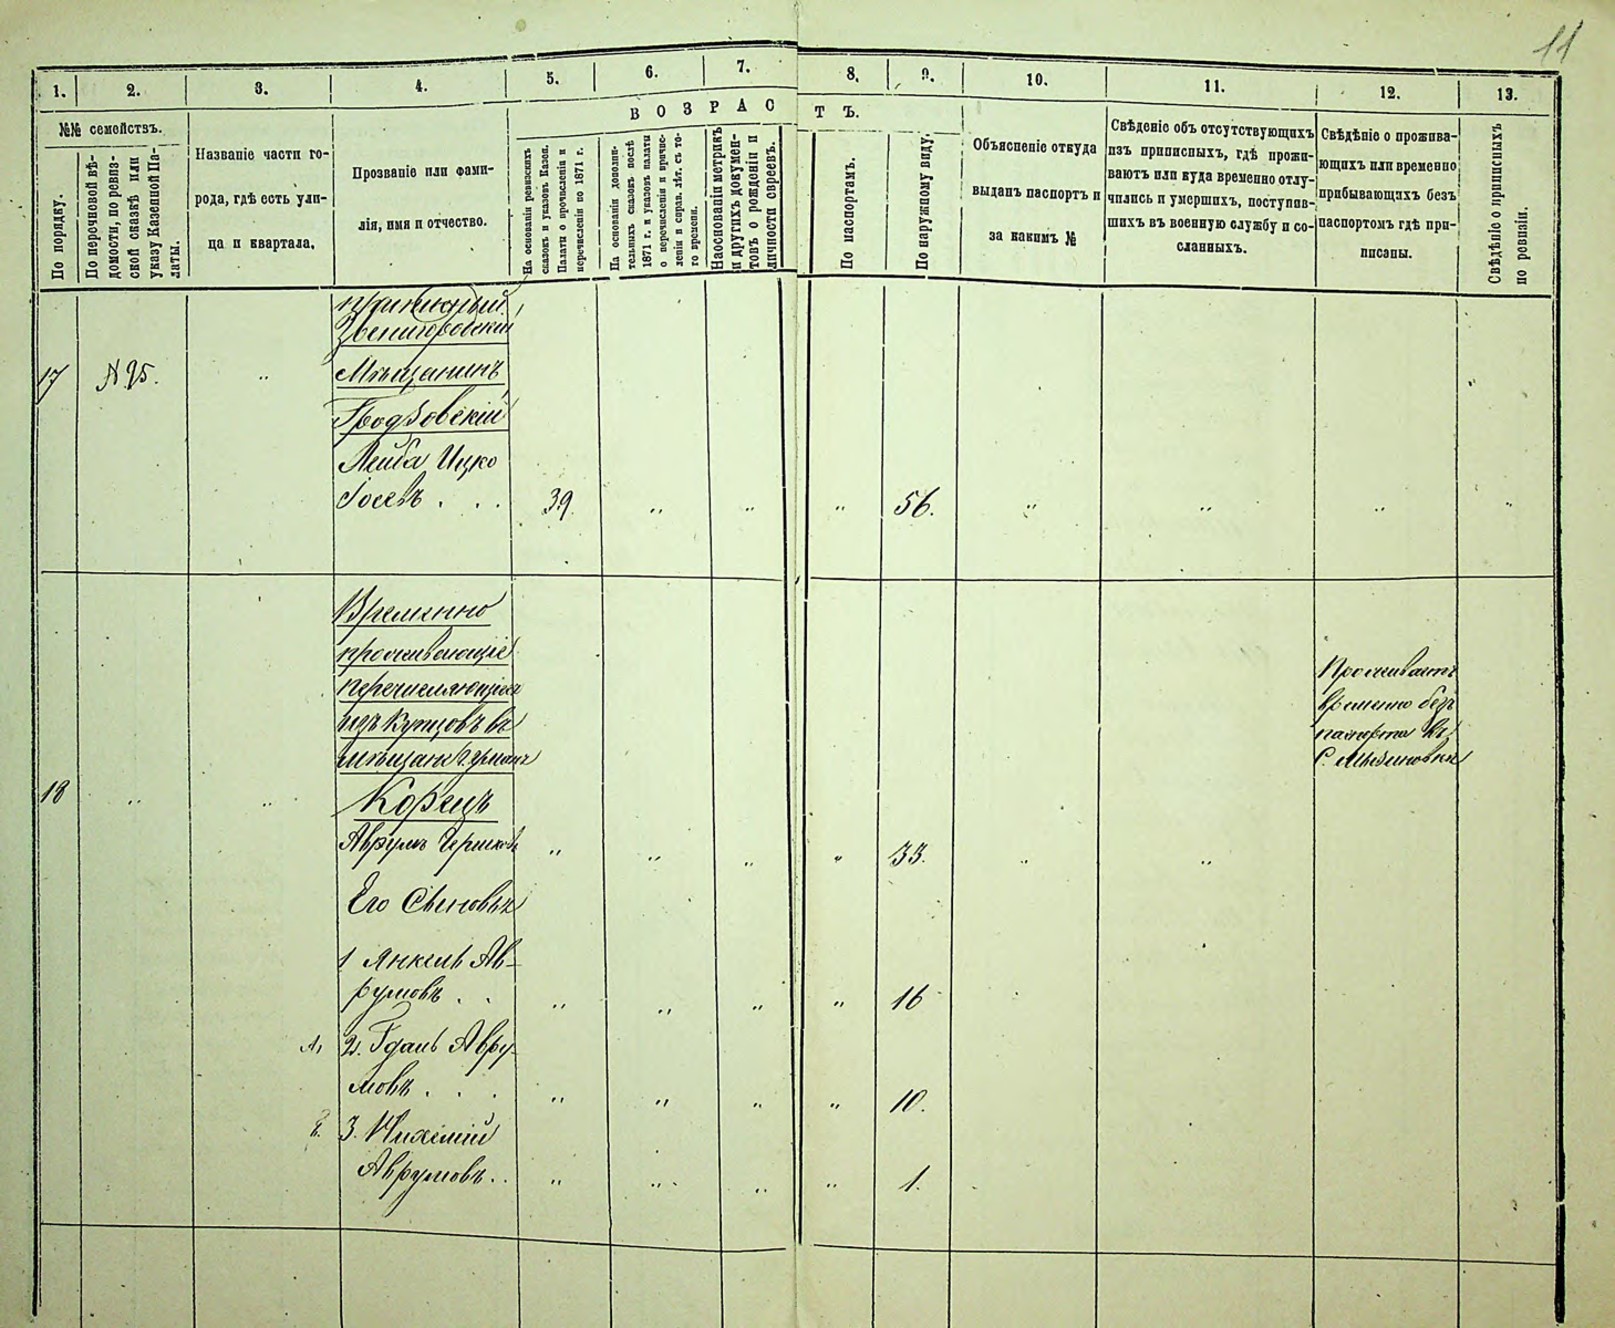 11
1. 2. 3. 4. 5. 6. 7. 8. 9. 10. 11. 12. 13.
ВОЗРАСТЪ.
№№ семействъ.
По порядку.
По перечневой вѣ-
домости, по ревиз-
ской сказкѣ или
указу Казенной Па-
латы.
Названіе части го-
рода, гдѣ есть ули-
ца и квартала.
Прозваніе или фами-
лія, имя и отчество.
На основаніи ревизскихъ
сказокъ и указовъ Казен.
Палаты о причисленіи и
перечисленіи по 1871 г.
На основаніи дополни-
тельныхъ сказокъ послѣ
1871 г. и указовъ палаты
о перечисленіи и причис-
леніи и справ. лѣт. съ то-
го времени.
На основаніи метрикъ
и другихъ докумен-
товъ о рожденіи и
личности евреевъ.
По паспортамъ.
По наружному виду.
Объясненіе откуда
выданъ паспортъ и
за какимъ №
Свѣденіе объ отсутствующихъ
изъ приписныхъ, гдѣ прожи-
ваютъ или куда временно отлу-
чились и умершихъ, поступив-
шихъ въ военную службу и со-
сланныхъ.
Свѣдѣніе о прожива-
ющихъ или временно
прибывающихъ безъ
паспортомъ гдѣ при-
писаны.
Свѣдѣніе о приписныхъ
по ревизіи.
приписный
Звенигородскій
17 №95. „ Мѣщанинъ
Лейба Ицко
Іосевъ . . . 39 „ „ „ 56. „ „ „ „
Временно
проживающіе
перечисляющіеся
изъ Купцовъ въ
Проживаетъ
временно безъ
паспорта въ
18 „ „ Корецъ
Аврумъ Гершковъ „ „ „ „ 33. „ „
Его Сыновья
1 Янкель Ав-
румовъ . . „ „ „ „ 16
2. Гдаль Авру-
мовъ . . . „ „ „ „ 10.
3.
Аврумовъ . . „ „ „ „ 1.